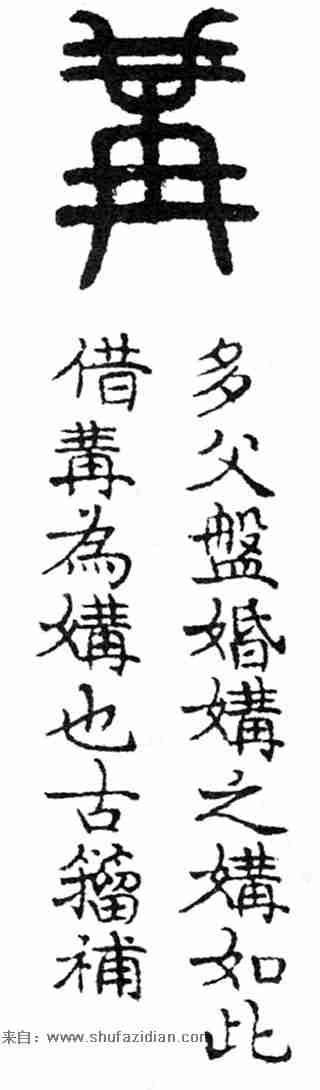 冓
多父盤婚媾之媾如此
借冓為媾也古籀補
来自：www.shufazidian.com